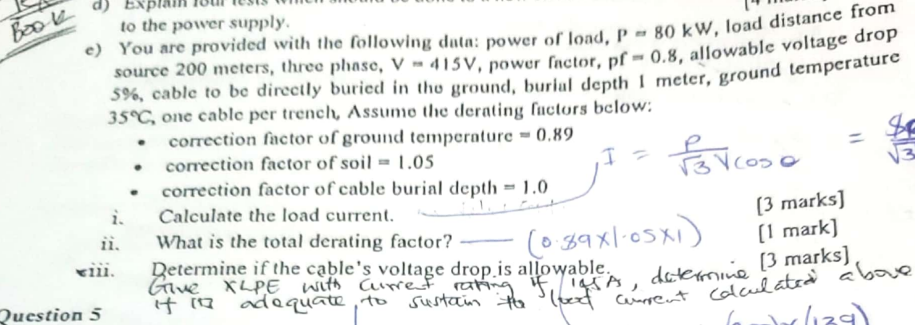 d) Explain four tests which should be done
to the power supply.
Boo
e) You are provided with the following data: power of load, P = 80 kW, load distance from
source 200 meters, three phase, V = 415V, power factor, pf = 0.8, allowable voltage drop
5%, cable to be directly buried in the ground, burial depth 1 meter, ground temperature
35°C, one cable per trench, Assume the derating factors below:
• correction factor of ground temperature = 0.89
• correction factor of soil = 1.05
• correction factor of cable burial depth = 1.0
I = P / √3 V cos θ =
√3
i. Calculate the load current. [3 marks]
ii. What is the total derating factor? (0.89×1.05×1) [1 mark]
iii. Determine if the cable's voltage drop is allowable. [3 marks]
Give XLPE with current rating of A, determine
if its adequate to sustain the current calculated above
Question 5